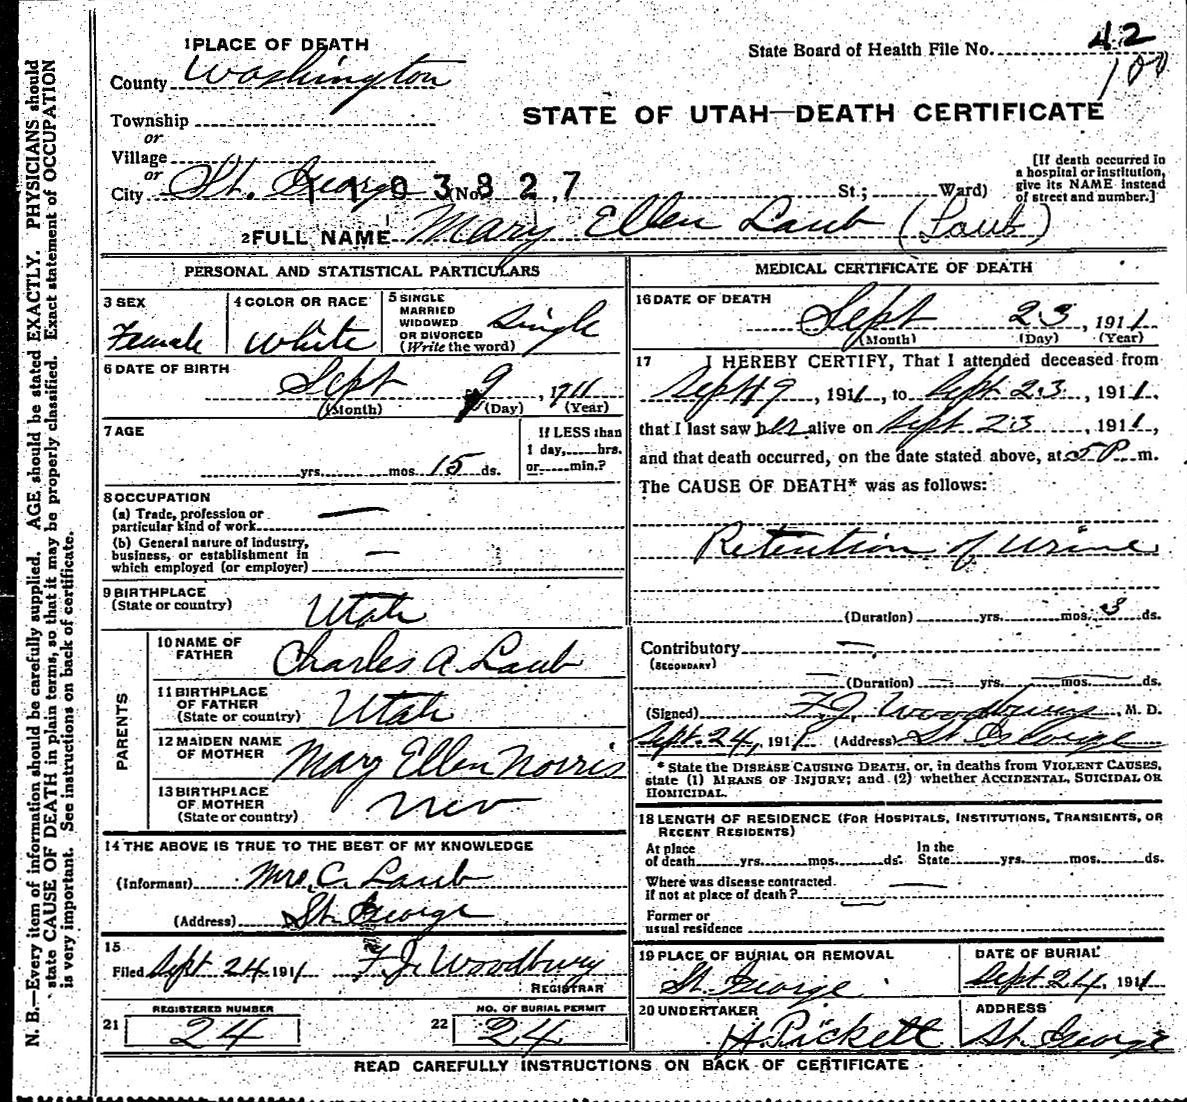 1 PLACE OF DEATH
County Washington
Township
or
Village
or
City St. George (No. St.; Ward)
1103827
State Board of Health File No. 42
100
STATE OF UTAH—DEATH CERTIFICATE
[If death occurred in
a hospital or institution,
give its NAME instead
of street and number.]
2 FULL NAME Mary Ellen Laub (Laub)
PERSONAL AND STATISTICAL PARTICULARS
3 SEX
Female
4 COLOR OR RACE
White
5 SINGLE
MARRIED
WIDOWED
OR DIVORCED
(Write the word)
Single
6 DATE OF BIRTH
Sept 9, 1911
(Month) (Day) (Year)
7 AGE
yrs. mos. 15 ds.
If LESS than
1 day, hrs.
or min.?
8 OCCUPATION
(a) Trade, profession or
particular kind of work —
(b) General nature of industry,
business, or establishment in
which employed (or employer) —
9 BIRTHPLACE
(State or country)
Utah
PARENTS
10 NAME OF
FATHER
Charles A. Laub
11 BIRTHPLACE
OF FATHER
(State or country)
Utah
12 MAIDEN NAME
OF MOTHER
Mary Ellen Norris
13 BIRTHPLACE
OF MOTHER
(State or country)
Nev
14 THE ABOVE IS TRUE TO THE BEST OF MY KNOWLEDGE
(Informant) Mrs. C. Laub
(Address) St. George
15
Filed Sept 24 1911 F. J. Woodbury
REGISTRAR
REGISTERED NUMBER
21 24
NO. OF BURIAL PERMIT
22 24
MEDICAL CERTIFICATE OF DEATH
16 DATE OF DEATH
Sept 23, 1911
(Month) (Day) (Year)
17 I HEREBY CERTIFY, That I attended deceased from
Sept 19, 1911, to Sept 23, 1911,
that I last saw her alive on Sept 23, 1911,
and that death occurred, on the date stated above, at 5 P. m.
The CAUSE OF DEATH* was as follows:
Retention of Urine
(Duration) yrs. mos. 3 ds.
Contributory —
(SECONDARY)
(Duration) — yrs. — mos. — ds.
(Signed) F. J. Woodbury, M. D.
Sept. 24, 1911 (Address) St. George
* State the DISEASE CAUSING DEATH, or, in deaths from VIOLENT CAUSES,
state (1) MEANS OF INJURY; and (2) whether ACCIDENTAL, SUICIDAL OR
HOMICIDAL.
18 LENGTH OF RESIDENCE (FOR HOSPITALS, INSTITUTIONS, TRANSIENTS, OR
RECENT RESIDENTS)
At place In the
of death yrs. mos. ds. State yrs. mos. ds.
Where was disease contracted —
If not at place of death? —
Former or
usual residence
19 PLACE OF BURIAL OR REMOVAL
St. George
DATE OF BURIAL
Sept 24, 1911
20 UNDERTAKER
H. Pickett
ADDRESS
St. George
READ CAREFULLY INSTRUCTIONS ON BACK OF CERTIFICATE
N. B.—Every item of information should be carefully supplied. AGE should be stated EXACTLY. PHYSICIANS should
state CAUSE OF DEATH in plain terms, so that it may be properly classified. Exact statement of OCCUPATION
is very important. See instructions on back of certificate.